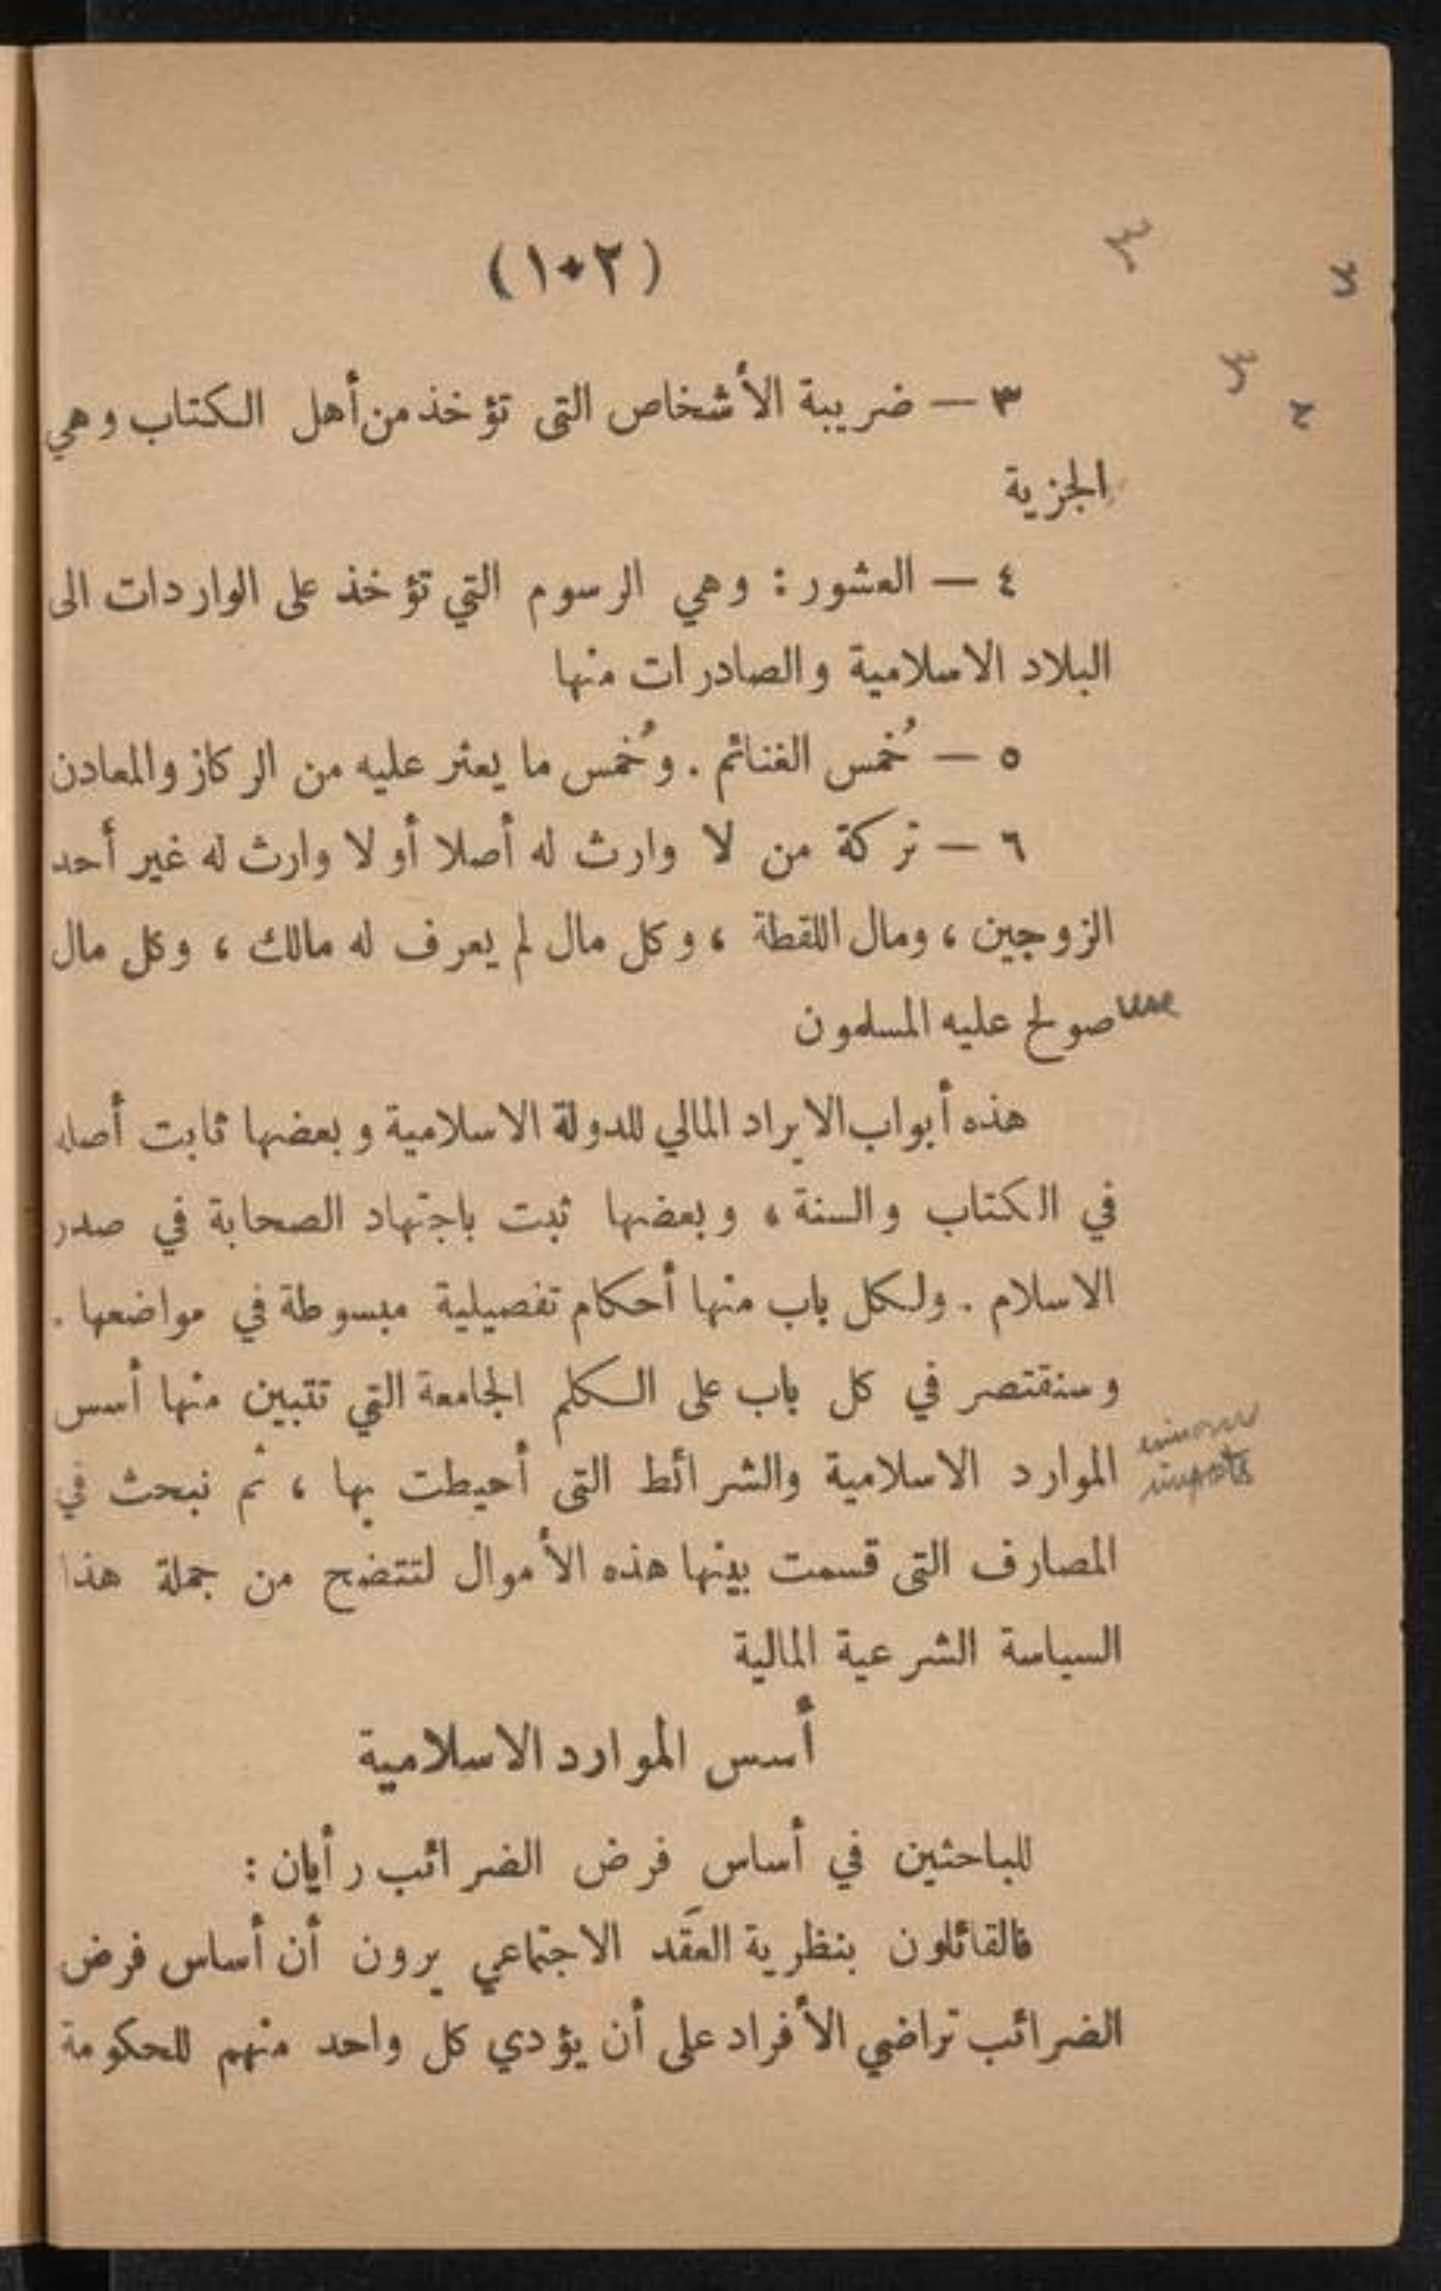 (١٠٢)
٣ — ضريبة الأشخاص التى تؤخذ من أهل الكتاب وهي
الجزية
٤ — العشور : وهي الرسوم التي تؤخذ على الواردات الى
البلاد الاسلامية والصادرات منها
٥ — خُمس الغنائم . وخُمس ما يعثر عليه من الركاز والمعادن
٦ — تركة من لا وارث له أصلا أو لا وارث له غير أحد
الزوجين ، ومال اللقطة ، وكل مال لم يعرف له مالك ، وكل مال
صولح عليه المسلمون
هذه أبواب الايراد المالي للدولة الاسلامية وبعضها ثابت أصله
في الكتاب والسنة ، وبعضها ثبت باجتهاد الصحابة في صدر
الاسلام . ولكل باب منها أحكام تفصيلية مبسوطة في مواضعها .
وسنقتصر في كل باب على الكلم الجامعة التي تتبين منها أسس
الموارد الاسلامية والشرائط التى أحيطت بها ، ثم نبحث في
المصارف التى قسمت بينها هذه الأموال لتتضح من جملة هذا
السياسة الشرعية المالية
أسس الموارد الاسلامية
للباحثين في أساس فرض الضرائب رأيان :
فالقائلون بنظرية العقَد الاجتماعي يرون أن أساس فرض
الضرائب تراضي الأفراد على أن يؤدي كل واحد منهم للحكومة